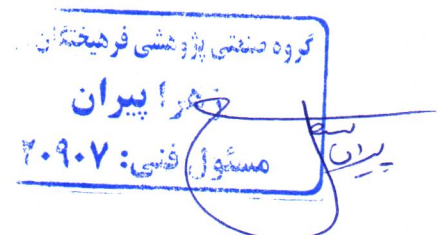 گروه صنعتی پژوهشی فرهیختگان
زهرا پیران
مسئول فنی: ۲۰۹۰۷